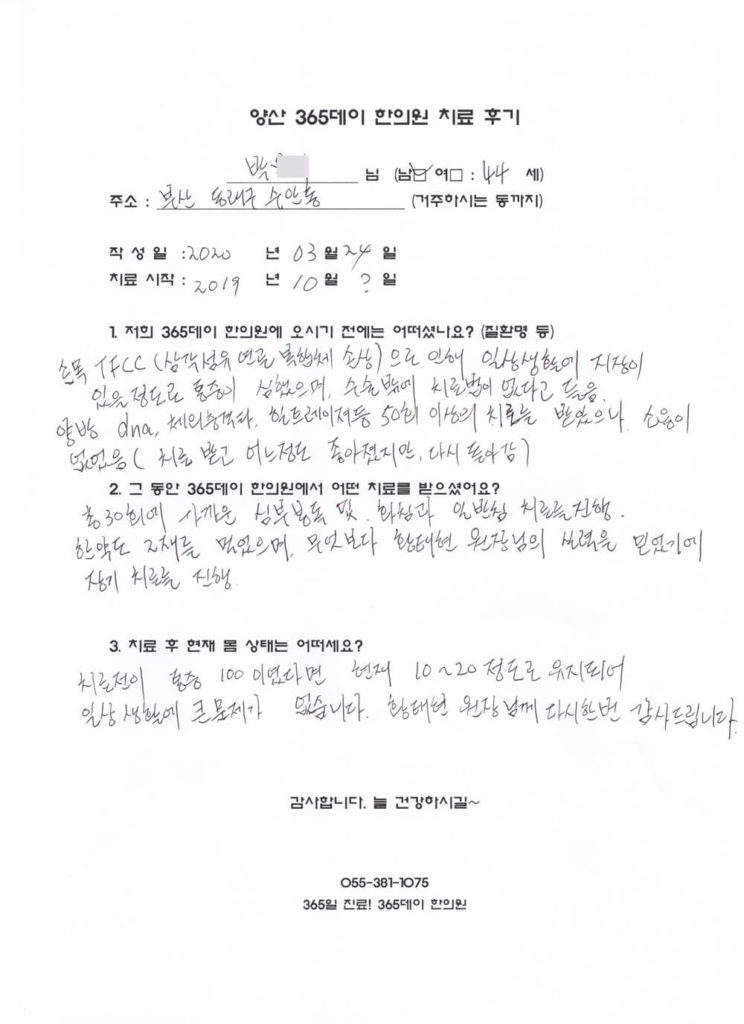 양산 365데이 한의원 치료 후기
박 님 (남☑ 여□ : 44 세)
주소 : 부산 동래구 수안동 (거주하시는 동까지)
작 성 일 : 2020 년 03 월 24 일
치료 시작 : 2019 년 10 월 ? 일
1. 저희 365데이 한의원에 오시기 전에는 어떠셨나요? (질환명 등)
손목 TFCC (삼각섬유 연골 복합체 손상)으로 인해 일상생활에 지장이
있을 정도로 통증이 심했으며, 수술밖에 치료법이 없다고 들음.
양방 dna, 체외충격파, 등 50회 이상의 치료를 받았으나 소용이
없었음 ( 치료 받고 어느정도 좋아졌지만, 다시 돌아감 )
2. 그 동안 365데이 한의원에서 어떤 치료를 받으셨어요?
총 30회에 가까운 심부 및 화침과 일반침 치료를 진행.
한약도 2재를 먹었으며, 무엇보다 황태현 원장님의 실력을 믿었기에
장기 치료를 진행
3. 치료 후 현재 몸 상태는 어떠세요?
치료전이 통증 100 이였다면 현재 10~20 정도로 유지되어
일상 생활에 큰 문제가 없습니다. 황태현 원장님께 다시한번 감사드립니다.
감사합니다. 늘 건강하시길~
055-381-1075
365일 진료! 365데이 한의원